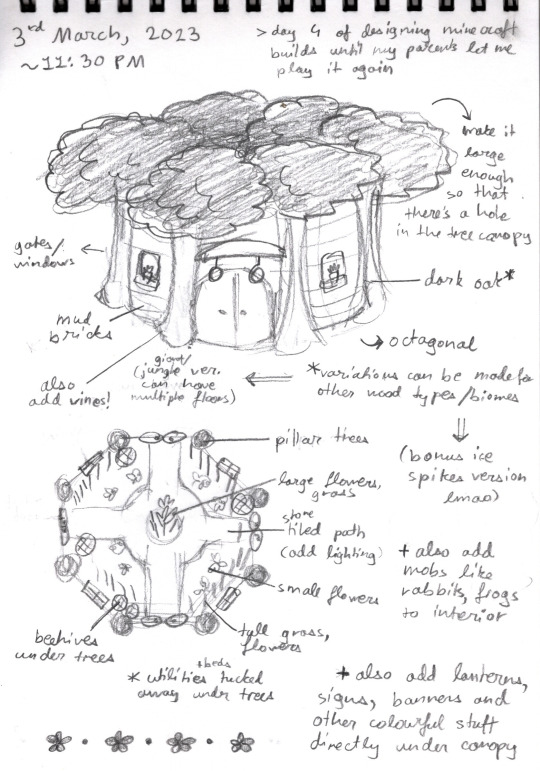 3rd March, 2023
~11:30 PM
> day 4 of designing minecraft
builds until my parents let me
play it again
make it
large
enough
so that
there's a hole
in the tree canopy
gates/
windows
dark oak*
mud
bricks
→ octagonal
also
add vines!
giant/
(jungle ver.
can have
multiple floors)
*variations can be made for
other wood types/biomes
(bonus ice
spikes version
lmao)
pillar trees
large flowers,
grass
stone
tiled path
(add lighting)
small flowers
tall grass,
flowers
beehives
under trees
+beds
* utilities tucked
away under trees
+ also add
mobs like
rabbits, frogs
to interior
+ also add lanterns,
signs, banners and
other colourful stuff
directly under canopy